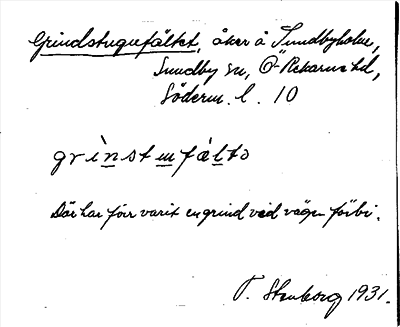 Grindstugufältet, åker å Sundbyholm,
Sundby sn, Ö-Rekarne hd,
Söderm. l. 10
grinstufälto
Där har förr varit en grind vid vägen förbi.
T. Stenborg 1931.